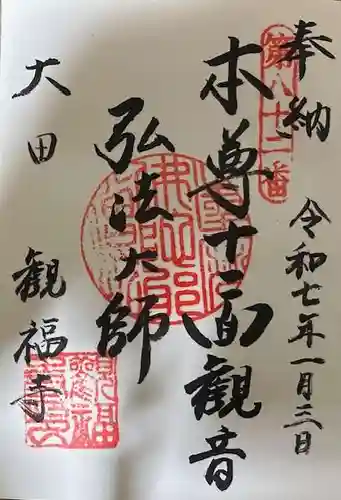 奉納
第八十二番
令和七年一月三日
本尊十一面観音
弘法大師
大田
観福寺